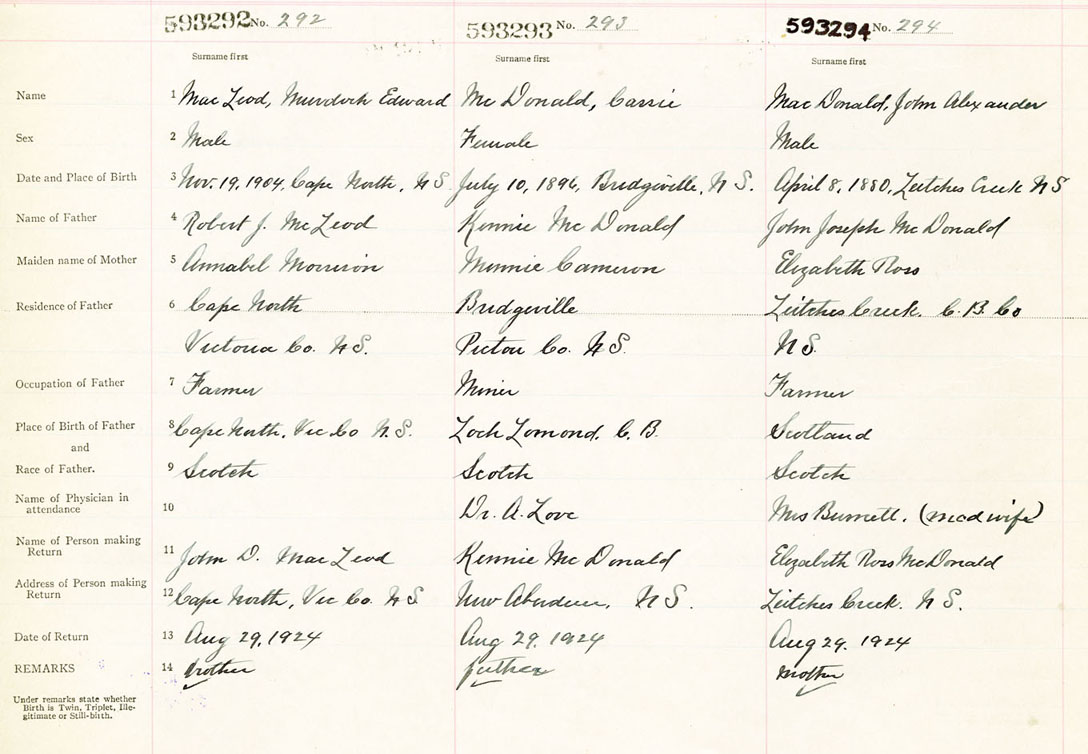 593292 No. 292 593293 No. 293 593294 No. 294
Surname first Surname first Surname first
Name 1 Mac Leod, Murdoch Edward Mc Donald, Carrie Mac Donald, John Alexander
Sex 2 Male Female Male
Date and Place of Birth 3 Nov. 19, 1904, Cape North, N S. July 10, 1896, Bridgeville, N. S. April 8, 1880, Leitches Creek N S
Name of Father 4 Robert J. Mc Leod Kennie Mc Donald John Joseph Mc Donald
Maiden name of Mother 5 Annabel Morrison Minnie Cameron Elizabeth Ross
Residence of Father 6 Cape North Bridgeville Leitches Creek. C. B. Co
Victoria Co. N S. Pictou Co. N S. N S.
Occupation of Father 7 Farmer Miner Farmer
Place of Birth of Father 8 Cape North, Vic Co N. S. Loch Lomond, C. B. Scotland
and
Race of Father. 9 Scotch Scotch Scotch
Name of Physician in
attendance 10 Dr. A. Love Mrs Burnett, (midwife)
Name of Person making
Return 11 John D. Mac Leod Kennie Mc Donald Elizabeth Ross McDonald
Address of Person making
Return 12 Cape North, Vic Co. N S. New Aberdeen, N S. Leitches Creek. N S.
Date of Return 13 Aug 29, 1924 Aug 29, 1924 Aug 29, 1924
REMARKS 14 brother father mother
Under remarks state whether
Birth is Twin, Triplet, Ille-
gitimate or Still-birth.